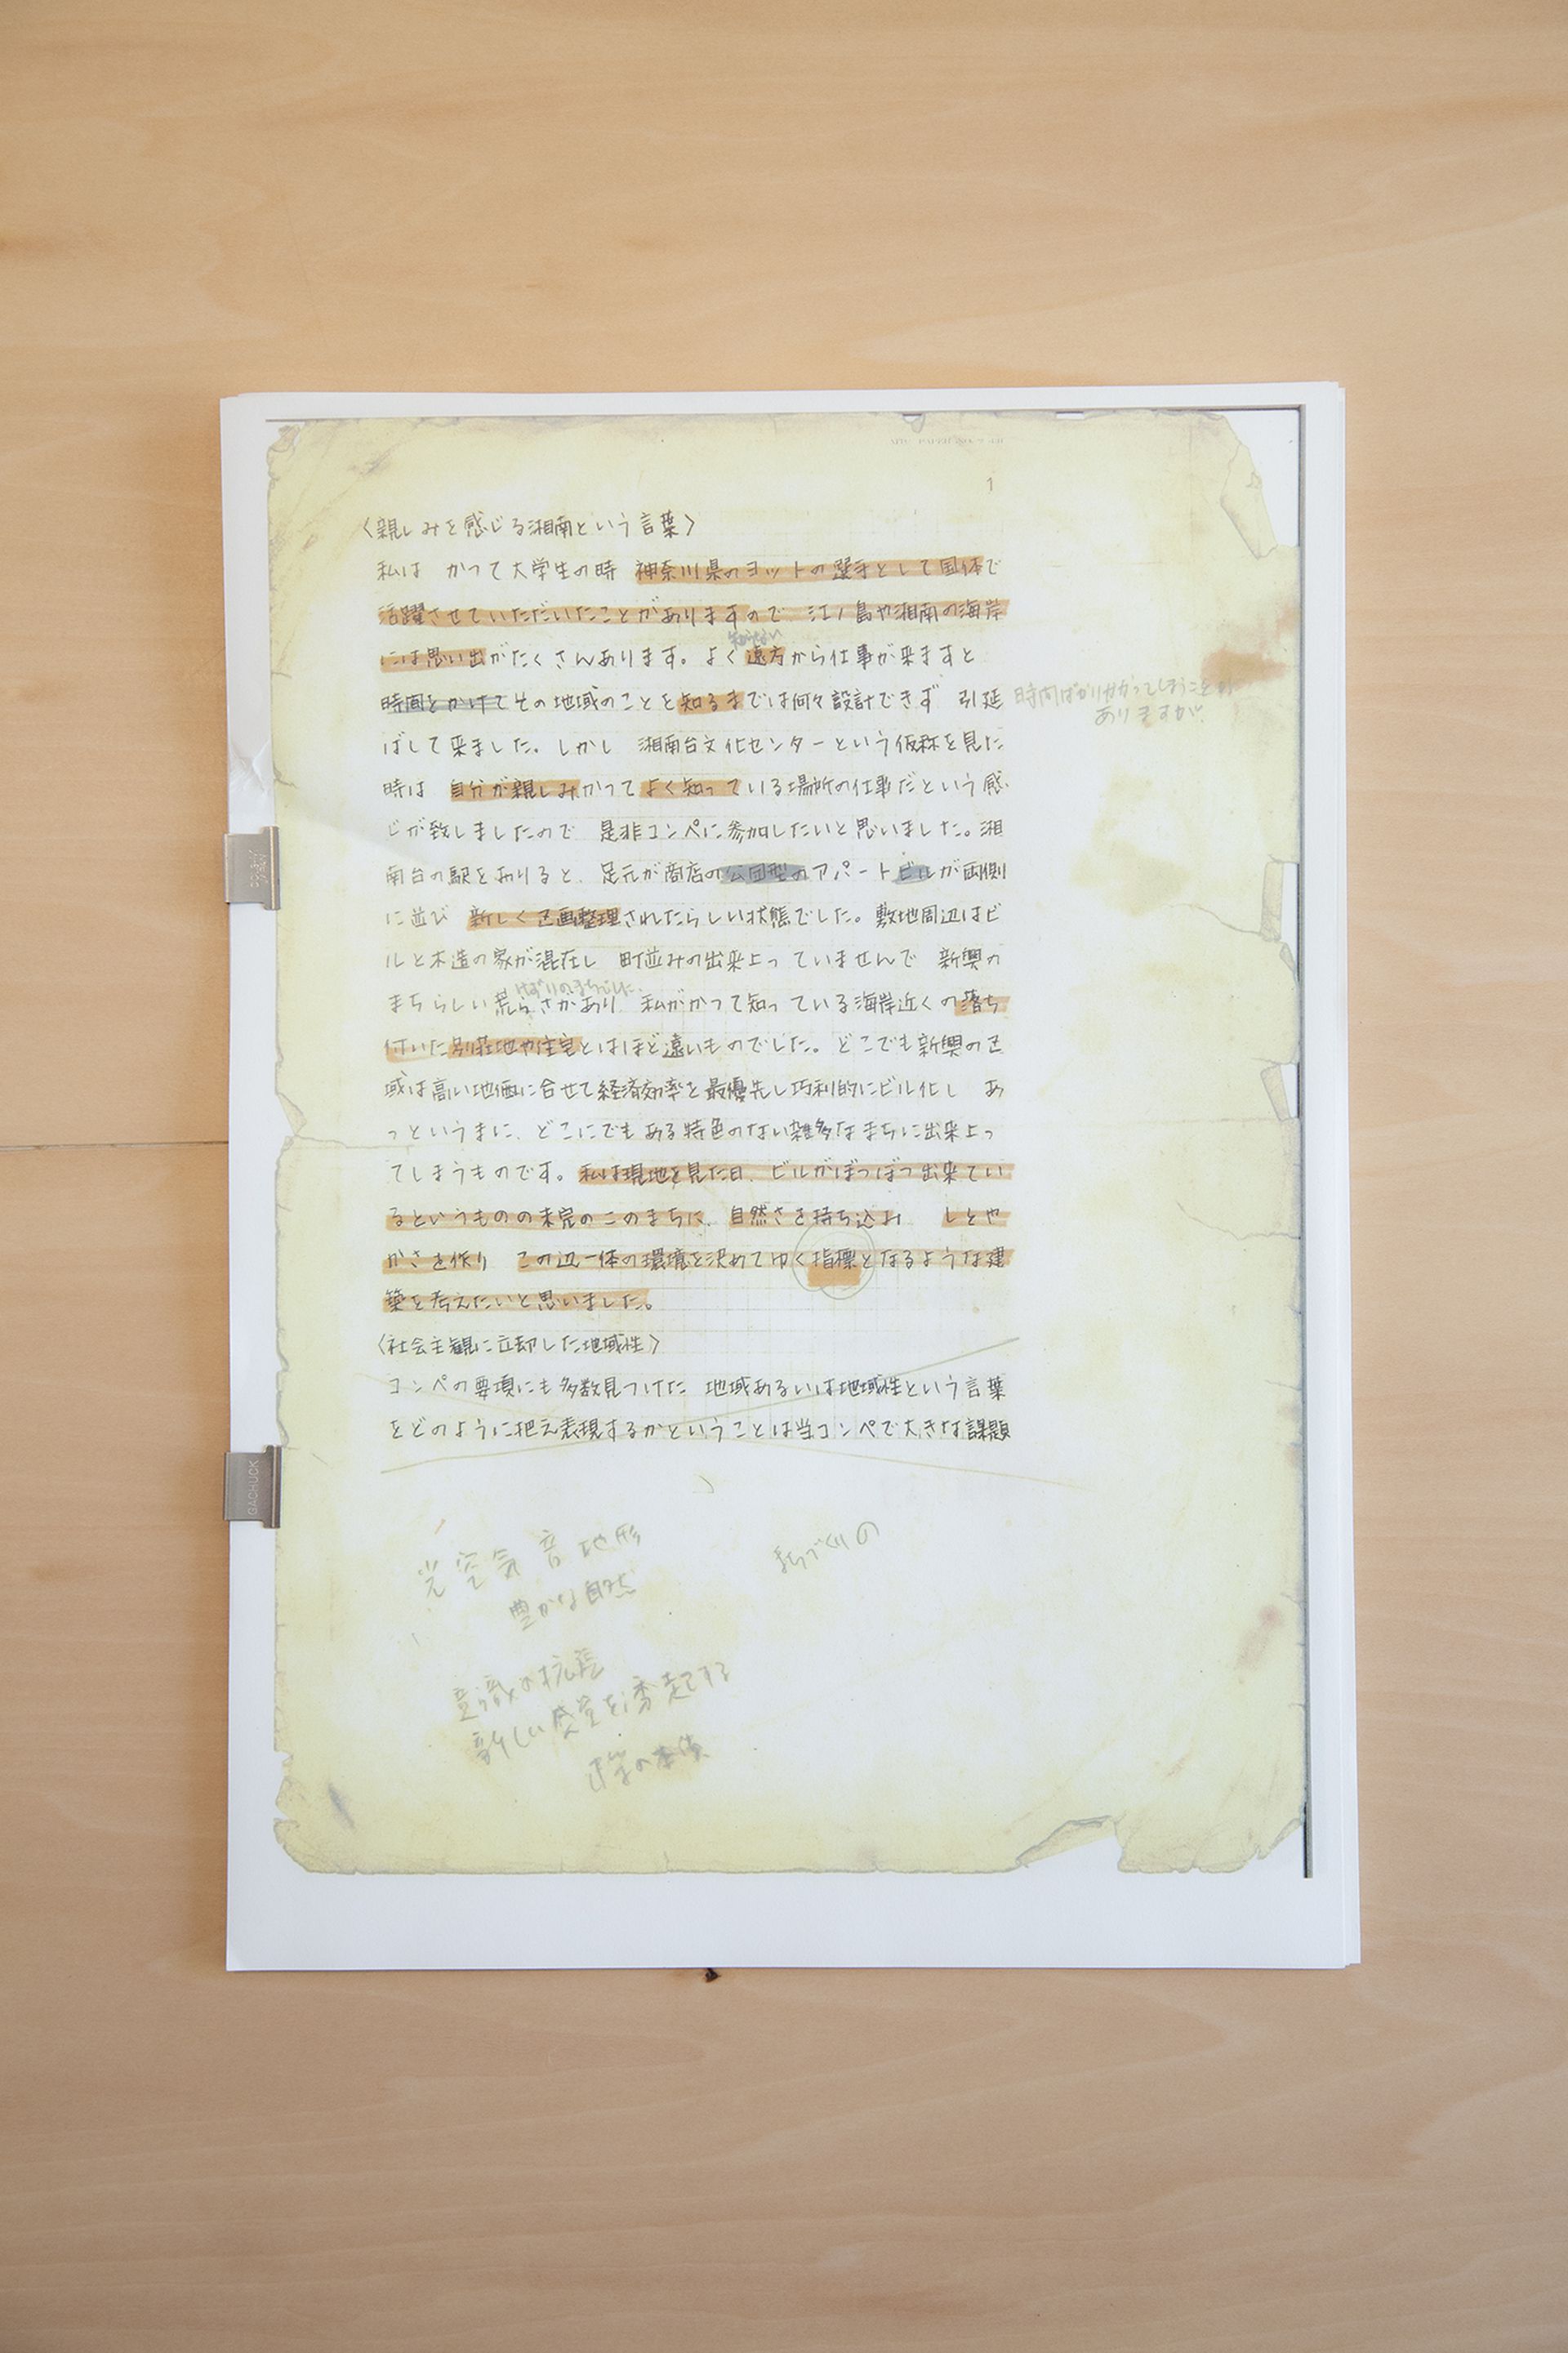 1
〈親しみを感じる湘南という言葉〉
私は かつて大学生の時 神奈川県のヨットの選手として国体で
活躍させていただいたことがありますので 江ノ島や湘南の海岸
には思い出がたくさんあります。よく遠方から仕事が来ますと
知らない
時間をかけてその地域のことを知るまでは何々設計できず 引延
時間ばかりかかってしまうことが
ありますが
ばして来ました。しかし 湘南台文化センターという仮称を見た
時は 自分が親しみかつてよく知っている場所の仕事だという感
じが致しましたので 是非コンペに参加したいと思いました。湘
南台の駅をおりると、足元が商店の公団型のアパートビルが両側
に並び 新しく区画整理されたらしい状態でした。敷地周辺はビ
ルと木造の家が混在し 町並みの出来上っていませんで 新興の
まちらしい荒らさがあり 私がかつて知っている海岸近くの落ち
付いた別荘地や住宅とはほど遠いものでした。どこでも新興の区
域は高い地価に合せて経済効率を最優先し巧利的にビル化し あ
っというまに、どこにでもある特色のない雑多なまちに出来上っ
てしまうものです。私は現地を見た日、ビルがぼつぼつ出来てい
るというものの未完のこのまちに、自然さを持ち込み しとや
かさを作り この辺一体の環境を決めてゆく指標となるような建
築を考えたいと思いました。
〈社会主観に立却した地域性〉
コンペの要項にも多数見つけた 地域あるいは地域性という言葉
をどのように把え表現するかということは当コンペで大きな課題
光 空気 音 地形
まちづくりの
豊かな自然
意識の
新しい感覚を誘起する
の本質
GACHUCK